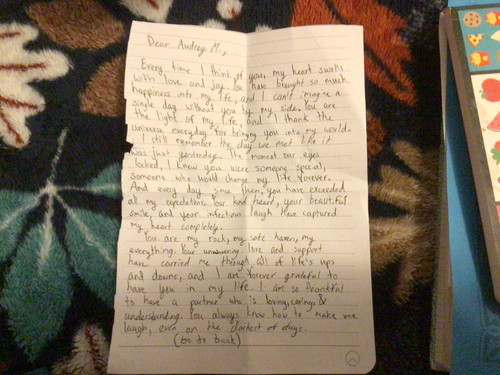 Dear Audrey M.,
Every time I think of you, my heart swells
with love and joy. You have brought so much
happiness into my life, and I can't imagine a
single day without you by my side. You are
the light of my life, and I thank the
universe everyday for bringing you into my world.
I still remember the day we met like it
was just yesterday. The moment our eyes
locked, I knew you were someone special,
someone who would change my life forever.
And every day since then, you have exceeded
all my expectations. Your kind heart, your beautiful
smile, and your infectious laugh have captured
my heart completely.
You are my rock, my safe haven, my
everything. Your unwavering love and support
have carried me through all of life's ups
and downs, and I am forever grateful to
have you in my life. I am so thankful
to have a partner who is loving, caring, &
understanding. You always know how to make me
laugh, even on the darkest of days.
(Go to back)